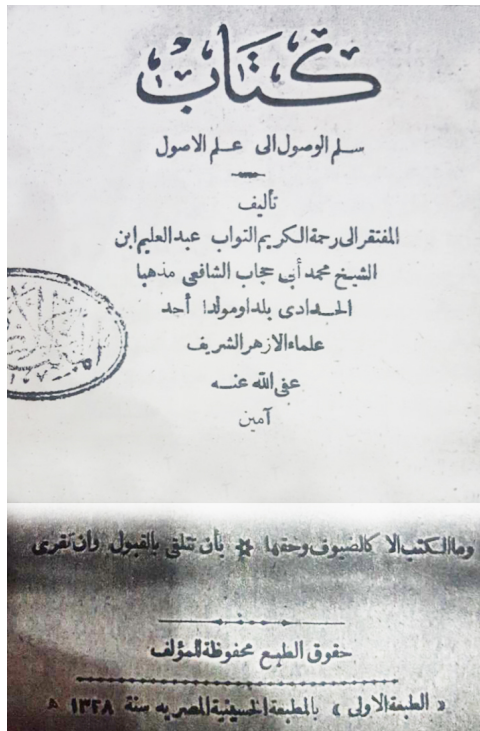 كتاب
سلم الوصول الى علم الاصول
تأليف
المفتقر الى رحمة الكريم التواب عبد العليم ابن
الشيخ محمد أبي حجاب الشافعي مذهبا
الحدادى بلدا ومولدا أحد
علماء الازهر الشريف
عفى الله عنه
آمين
وما الكتب الا كالضيوف وحقها * بأن تتلقى بالقبول وأن تقرى
حقوق الطبع محفوظة للمؤلف
« الطبعة الاولى » بالمطبعة الحسينية المصريه سنة ١٣٢٨ ه